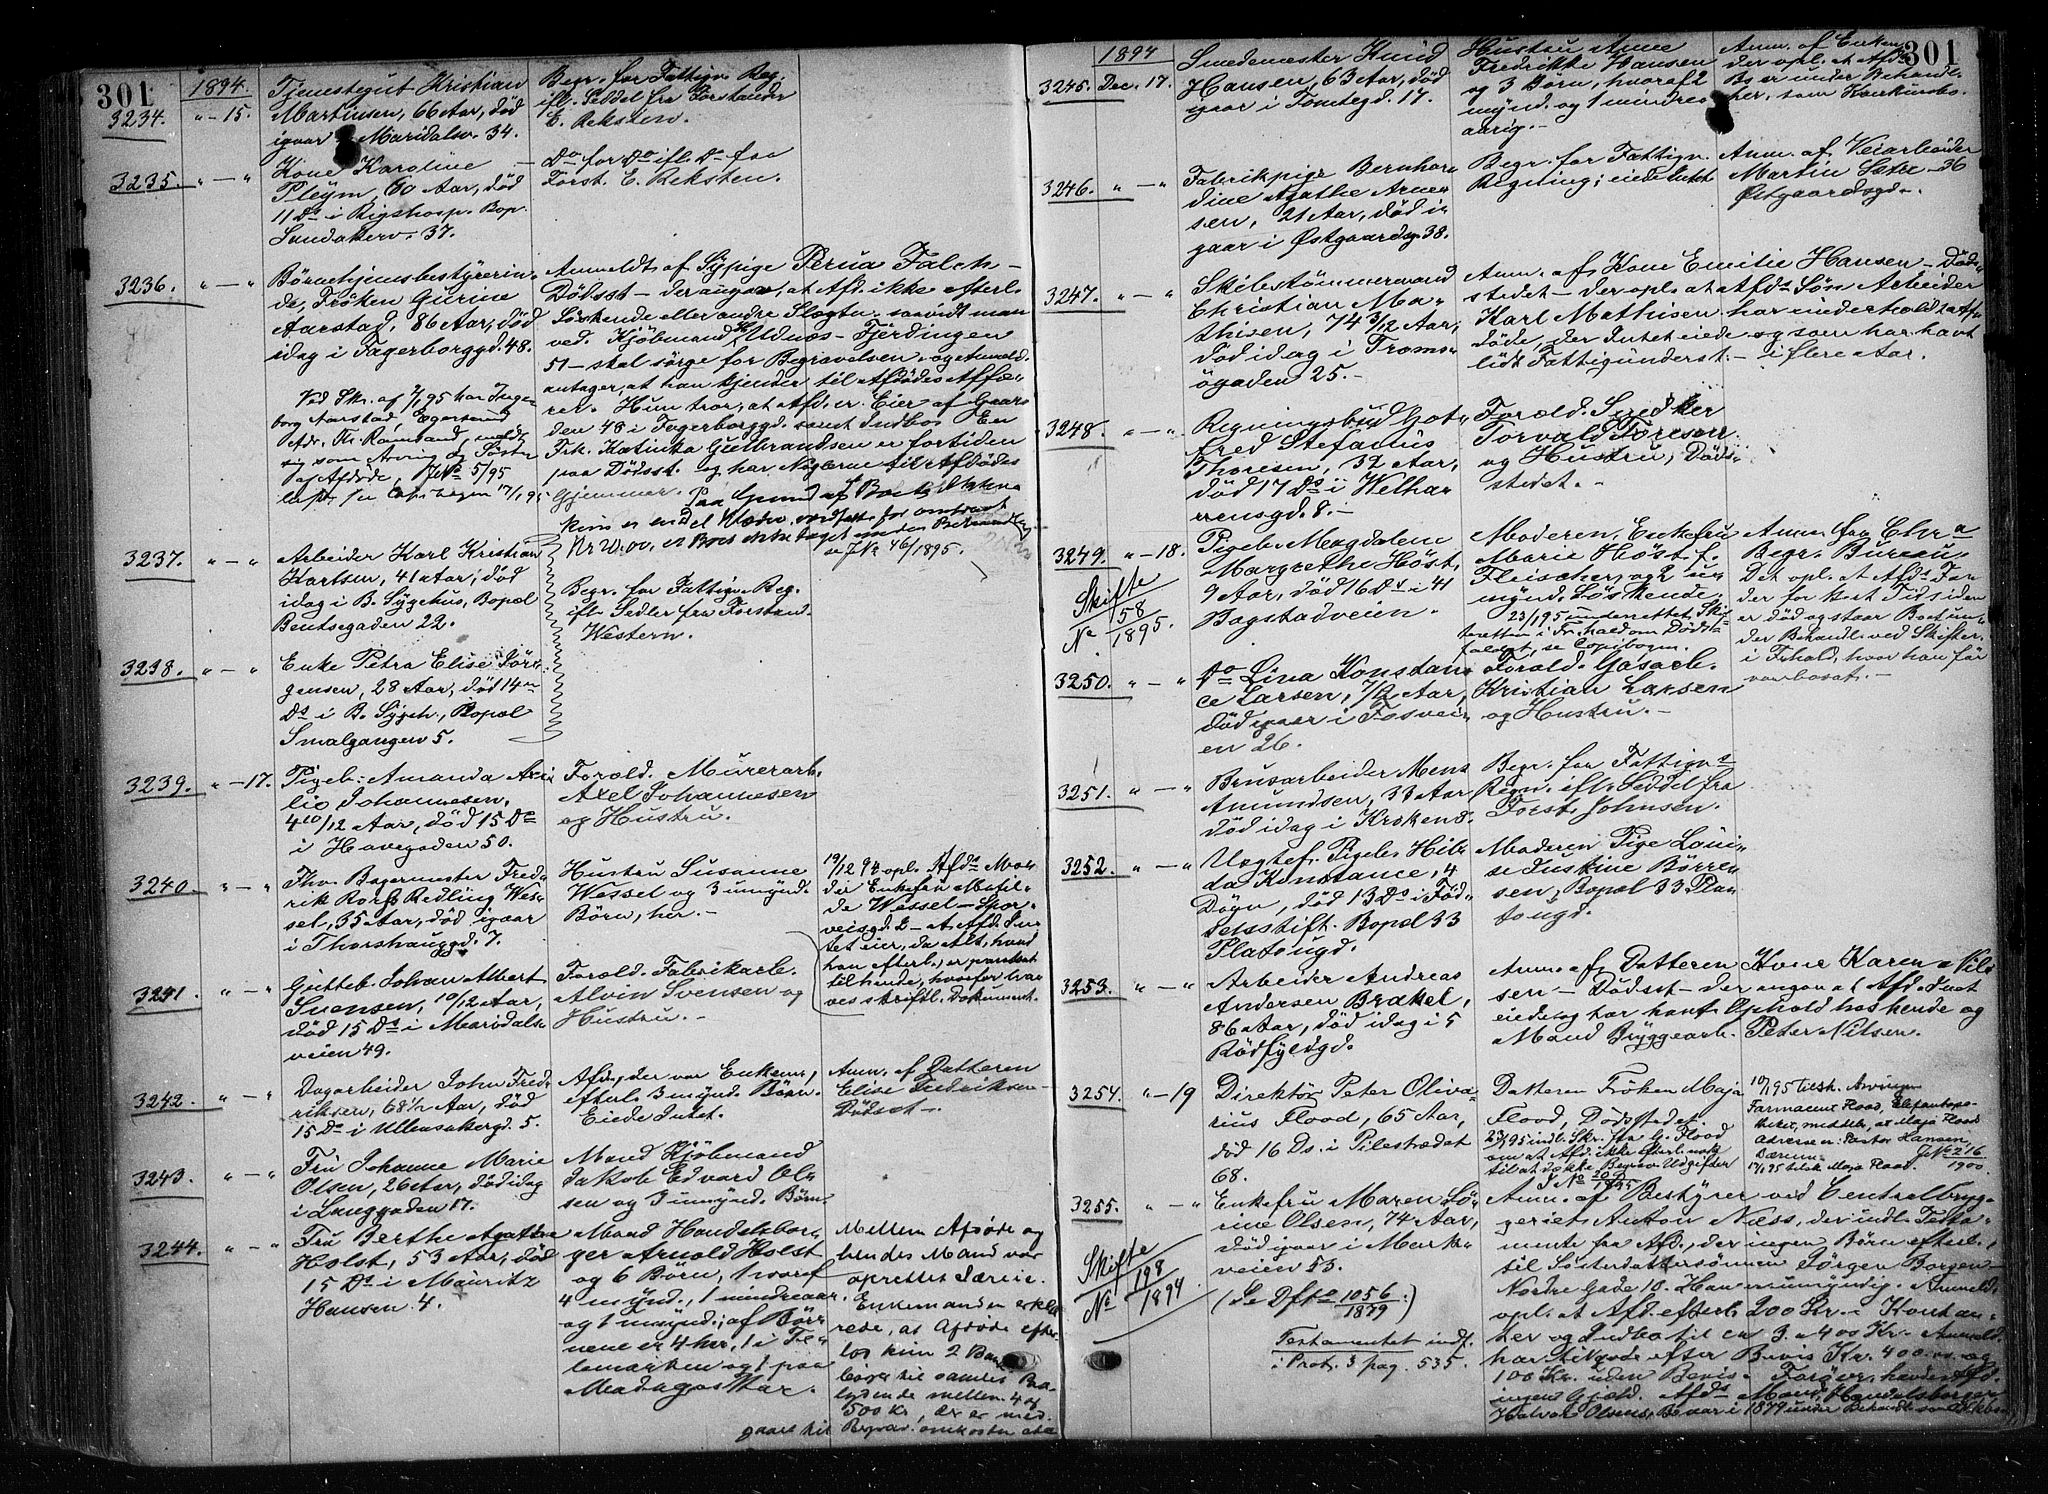 301
1894.
3234. " - 15. Tjenestegut Kristian
Martinsen, 66 Aar, død
igaar Maridalsv. 34.
Begr. for Fattign. Reg.
ifl. Seddel fra Forstander
E. Reksten.
3235. " - " Kone Karoline
Pleym, 60 Aar, død
11 Ds i Rigshosp. Bop.
Sandakerv. 37.
Do for Do ifl. Do fra
Forst. E. Reksten.
3236. " - " Børnehjemsbestyrerin-
de, Frøken Gurine
Aarstad, 86 Aar, død
idag i Fagerborggd. 48.
Ved Skr. af 7/1 95 har Inge-
borg Aarstad, Egersund
sig som Arving og Søster
af Afdøde, JNo 5/95
Anmeldt af Sypige Perua Falch -
Dødsst. - der angav, at Afd. ikke efterl.
Søskende eller andre Slægtn. saavidt man
ved. Kjøbmand Udnæs - Fjerdingen
51 - skal sørge for Begravelsen, og Anmeld.
antager, at han kjender til Afdødes Affæ-
rer. Hun tror, at Afd. er Eier af Gaar-
den 48 i Fagerborggd. samt Indbo. En
Frk. Katinka Gulbrandsen er fortiden
paa Dødsst. og har Nøglerne til Afdødes
Gjemmer. Paa Grund af Boets
kun er en Del Klæder, værdsatte for omtrent
Kr 20,00, er Boet ikke taget under Behandling
JNo 46/1895.
3237. " - " Arbeider Karl Kristian
Karlsen, 41 Aar, død
idag i B. Sygehus, Bopæl
Bentsegaden 22.
Begr. for Fattign. Reg.
ifl. Sedler fra Forstand.
Western.
3238. " - " Enke Petra Elise Jør-
gensen, 28 Aar, død 14de
Ds i B. Sygeh., Bopæl
Smalgangen 5.
3239. " - 17. Pigeb. Amanda Axe-
lie Johannesen,
4 10/12 Aar, død 15 Ds
i Havegaden 50.
Foræld. Murerarb.
Axel Johannesen
og Hustru.
3240. " - " Fhv. Bagermester Fred-
rik Rorss Redling Wes-
sel, 35 Aar, død igaar
i Thorshauggd. 7.
Hustru Susanne
Wessel og 3 umynd.
Børn, her. -
19/12 94 opl. Afds Mo-
der Enkefru Matil-
de Wessel - Spor-
veisgd. 2 - at Afd. In-
tet eier, da Alt, hvad
han efterl., er pantsat
til hende, hvorfor hav-
ves skriftl. Dokument.
3241. " - " Gutteb. Johan Albert
Svensen, 10/12 Aar,
død 15 Ds i Maridals-
veien 49.
Foræld. Fabrikarb.
Alvin Svensen og
Hustru. -
3242. " - " Dagarbeider John Fred-
riksen, 68 1/2 Aar, død
15 Ds i Ullensakergd. 5.
Afd., der var Enkem.,
efterl. 3 mynd. Børn.
Eiede Intet.
Anm. af Datteren
Elise Fredriksen -
Dødsst. -
3243. " - " Fru Johanne Marie
Olsen, 26 Aar, død idag
i Langgaden 17.
Mand Kjøbmand
Jakob Edvard Ol-
sen og 3 umynd. Børn.
3244. " - " Fru Berthe Agathe
Holst, 53 Aar, død
15 Ds i Mauritz
Hansen 4.
Mand Handelsbor-
ger Arnold Holst
og 6 Børn, hvoraf
4 mynd., 1 mindreaar.
og 1 umynd.; af Bør-
nene er 4 her, 1 i Te-
lemarken og 1 paa
Madagaskar.
Mellem Afdøde og
hendes Mand var
oprettet Særeie.
Enkemanden erklæ-
rede, at Afdøde efter-
lod kun 2 Bank-
bøger til samlet Be-
lydende mellem 4 og
500 Kr., der er med-
gaaet til Begrav. omkostn.
301
1894
3245. Dec. 17. Smedemester Knud
Hansen, 63 Aar, død
igaar i Tomtegd. 17.
Hustru Anne
Fredrikke Hansen
og 3 Børn, hvoraf 2
mynd. og 1 mindre-
aarig. -
Anm. af Enken,
der opl. at Afds
Bo er under Behandl.
her, som Konkursbo.
3246. " - " Fabrikpige Bernhar-
dine Agathe Arne-
sen, 21 Aar, død i-
gaar i Østgaardsg. 38.
Begr. for Fattign.
Regning; eiede Intet
Anm. af Veiarbeider
Martin Sætre - 36
Østgaardsgd. -
3247. " - " Skibstømmermand
Christian Ma-
thisen, 74 3/12 Aar,
død idag i Troms-
øgaden 25. -
Anm. af Kone Emilie Hansen - Død-
stedet - der opl. at Afds Søn Arbeider
Karl Mathisen har underholdt Af-
døde, der Intet eiede og som har havt
lidt Fattigunderst. - i flere Aar.
3248. " - " Regningsbud Got-
fred Stefanus
Thoresen, 32 Aar,
død 17 Ds i Welha-
vensgd. 8. -
Foræld. Snedker
Torvald Toresen
og Hustru, Døds-
stedet. -
3249. " - 18. Pigeb. Magdalene
Margrethe Høst,
9 Aar, død 16 Ds i 41
Bogstadveien.
Skifte
No 58/1895.
Moderen, Enkefru
Marie Høst f.
Fleischer, og 2 u-
mynd. Søskende.
23/1 95 underrettet Skif-
teretten i Fr.hald om Døds-
faldet, se Copibogen.
Anm. fra Chra
Begr. Bureau.
Det opl. at Afds Fa-
der for kort Tid siden
er død og staar Boet un-
der Behandl. ved Skifter.
i Frhald, hvor han før
var bosat. -
3250. " - " Do Lina Konstan-
ce Larsen, 7/12 Aar,
død igaar i Fosvei-
en 26.
Foræld. Gasarb.
Kristian Larsen
og Hustru. -
3251. " - " Brusarbeider Mons
Amundsen, 33 Aar
død idag i Krohens.
Begr. for Fattigns
Regn. ifl. Seddel fra
Forst. Johnsen.
3252. " - " Uægtef. Pigeb. Hil-
da Konstance, 4
Døgn, død 13 Ds i Fød-
selsstift. Bopæl 33
Platougd.
Moderen Pige Loui-
se Juskine Børre-
sen, Bopæl 33 Pla-
tougd.
3253. " - " Arbeider Andreas
Andersen Brækel,
86 Aar, død idag i 5
Rødfyldgd.
Anm. af Datteren Kone Karen Nil-
sen - Dødsst. - der angav at Afd. Intet
eiede og har havt Ophold hos hende og
Mand Bryggearb. Peter Nilsen.
3254. " - 19 Direktør Peter Oliva-
rius Flood, 65 Aar,
død 16 Ds. i Pilestrædet
68.
Datteren Frøken Maja
Flood, Dødsstedet.
23/1 95 indl. Skr. fra G. Flood
om at Afd. ikke efterl. nok
til at dække Begrav. Udgifter
10/1 95 tilsk. Arvingen
Farmaceut Flood, Elefantapo-
theket, meddelt, at Maja Floods
Adresse er: Pastor Hansen
Bærum. JNo 216/1900.
17/1 95 tilsk. Maja Flood.
3255. " - " Enkefru Maren Lo-
rine Olsen, 74 Aar,
død igaar i Mark-
veien 53.
(Se Dfto 1056/1879.)
Testamentet indf.
i Prot. 3 pag. 535.
Skifte
No 198/1894
Anm. af Bestyrer ved Centralbryg-
geriet Anton Næss, der indl. Testa-
mente fra Afd., der ingen Børn efterl.,
til Søsterdattersønnen Jørgen Borgen -
Nordre Gade 10. Han er umyndig. Anmeld.
opl. at Afd. efterl. 200 Kr. i Kontan-
ter og Indbo til ca 3 a 400 Kr. Anmeld.
har tilgode efter Bevis Kr. 400.00 og
100 Kr. uden Bevis. Forøvr. havde Afd.
ingen Gjæld. Afds Mand, Handelsborger
Halvor Olsens Bo var i 1879 under Behandl.